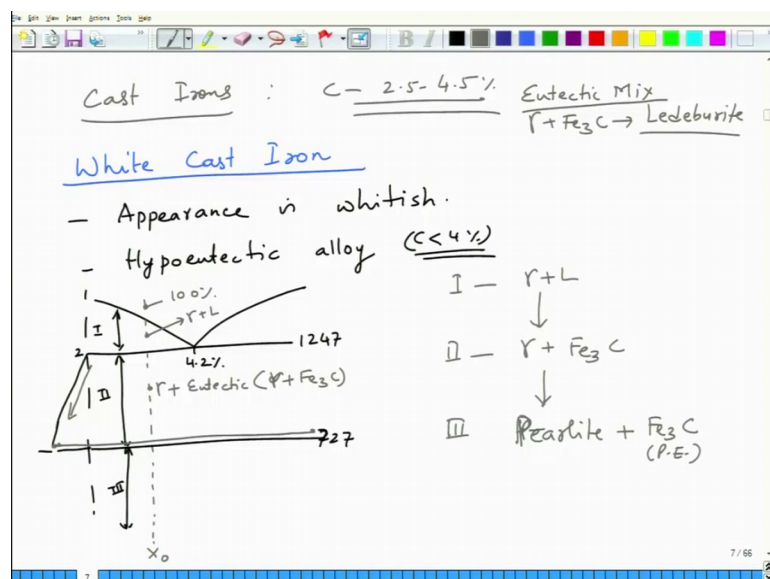 File Edit View Insert Actions Tools Help
B I
Cast Irons : C - 2.5-4.5% Eutectic Mix
γ + Fe3C → Ledeburite
White Cast Iron
- Appearance is whitish.
- Hypoeutectic alloy (C < 4%)
1
100%
γ+L
I
2
1247
4.2%
γ + Eutectic (γ + Fe3C)
II
727
III
X0
I - γ+L
↓
II - γ + Fe3C
↓
III Pearlite + Fe3C
(P.E.)
7 / 66
7